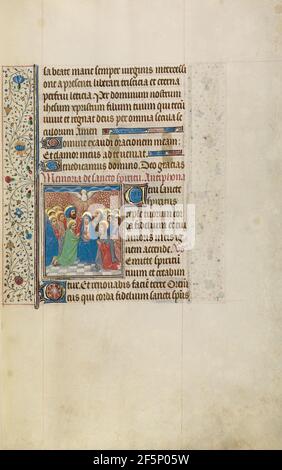 sa beate marie semper virginis intercessi
one a presenti liberari tristicia et eterna
perfrui leticia Per dominum nostrum
ihesum xpristum filium tuum qui tecū
vivit et regnat deus per omnia secula se
culorum Amen
Domine exaudi orationem meam
Et clamor meus ad te veniat
Benedicamus domino Deo gracias
Memoria de sancto spiritu Antiphona
Veni sancte
spiritus
reple tuorum cor
da fidelium et tui
amoris in eis ig
nem accende Vs
Emitte spiritū
tuum et creabun
tur Et renovabis faciē terre Oremꝰ
Deus qui corda fidelium sancti spūs
alamy
Image ID: 2F5P05W
www.alamy.com